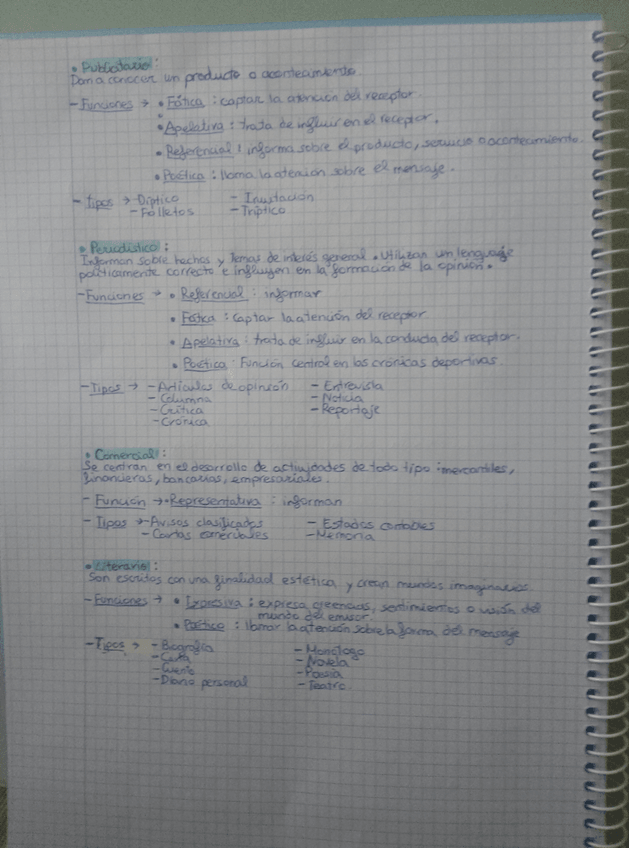 • Publicitario:
Dan a conocer un producto o acontecimiento.
- Funciones → • Fática: captar la atención del receptor.
• Apelativa: trata de influir en el receptor.
• Referencial: informa sobre el producto, servicio o acontecimiento.
• Poética: llama la atención sobre el mensaje.
- Tipos → - Díptico - Inustación
- Folletos - Tríptico
• Periodístico:
Informan sobre hechos y temas de interés general. Utilizan un lenguaje
políticamente correcto e influyen en la formación de la opinión.
- Funciones → • Referencial: informar
• Fática: captar la atención del receptor
• Apelativa: trata de influir en la conducta del receptor.
• Poética: Función central en las crónicas deportivas.
- Tipos → - Artículos de opinión - Entrevista
- Columna - Noticia
- Crítica - Reportaje
- Crónica
• Comercial:
Se centran en el desarrollo de actividades de todo tipo: mercantiles,
financieras, bancarias, empresariales.
- Función → • Representativa: informan
- Tipos → - Avisos clasificados - Estados contables
- Cartas comerciales - Memoria
• Literario:
Son escritos con una finalidad estética y crean mundos imaginarios.
- Funciones → • Expresiva: expresa creencias, sentimientos o visión del
mundo del emisor.
• Poético: llamar la atención sobre la forma del mensaje
- Tipos → - Biografía - Monólogo
- Carta - Novela
- Cuento - Poesía
- Diario personal - Teatro